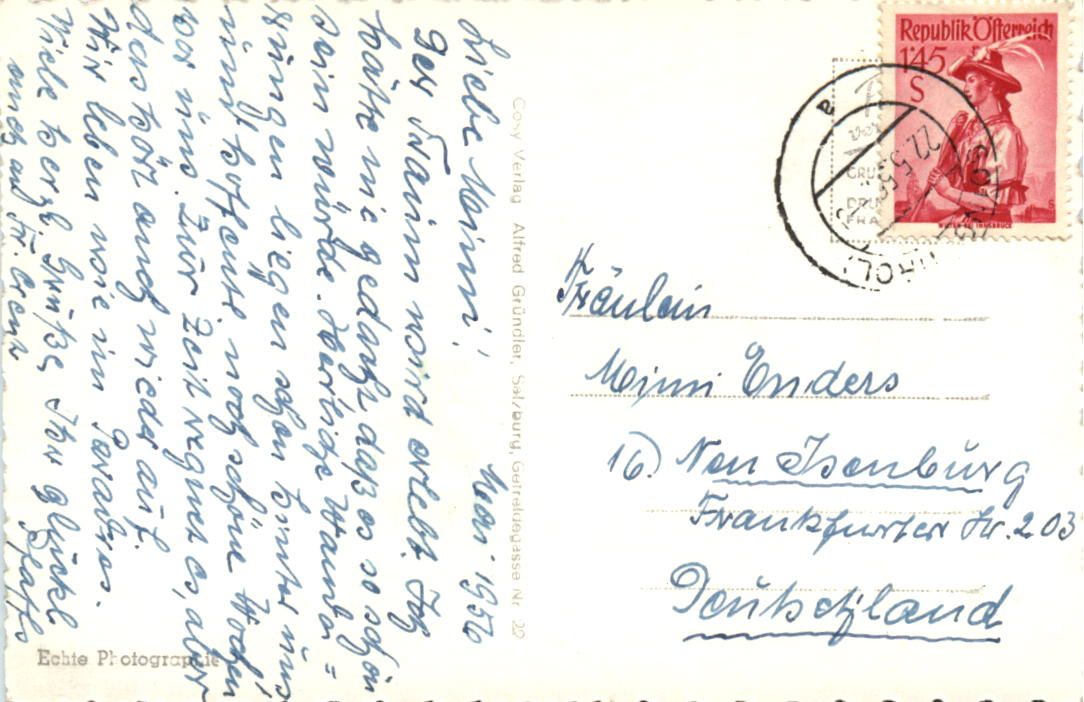 Liebe Mimi! Mai 1956
Der Traum wird erlebt. Ich
hätte nie gedacht, daß es so schön
sein würde. Herrliche Wande=
rungen liegen schon hinter uns
und hoffentl. noch schöne Wochen
vor uns. Zur Zeit regnet es, aber
das hört auch wieder auf.
Wir leben wie im Paradies.
Viele herzl. Grüße, Ihr glückl.
auch an Fr.
Cosy Verlag Alfred Gründler, Salzburg, Getreidegasse Nr. 22
Echte Photographie
Republik Österreich
1'45
S
WILTEN BEI INNSBRUCK
22.5.56
TIROL
Fräulein
Mimi Enders
16) Neu Isenburg
Frankfurter Str. 203
Deutschland